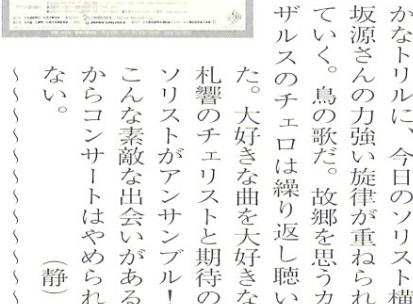 かなトリルに、今日のソリスト横
坂源さんの力強い旋律が重ねられ
ていく。鳥の歌だ。故郷を思うカ
ザルスのチェロは繰り返し聴い
た。大好きな曲を大好きな
札響のチェリストと期待の
ソリストがアンサンブル!
こんな素敵な出会いがある
からコンサートはやめられ
ない。
(静)